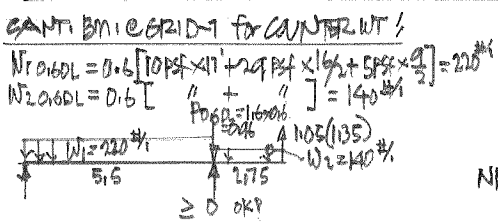 CANTI BM @ GRID-1 for COUNTER WT!
W1 0.6DL = 0.6[10psf×17'+29psf×16/2+5psf×9/2]=220#/'
W2 0.6DL = 0.6[ " + " ]=140#/'
=0.96
1.05(1.35)
W1=220#/'
W2=140#/'
5.5
2.75
≥ 0 OK